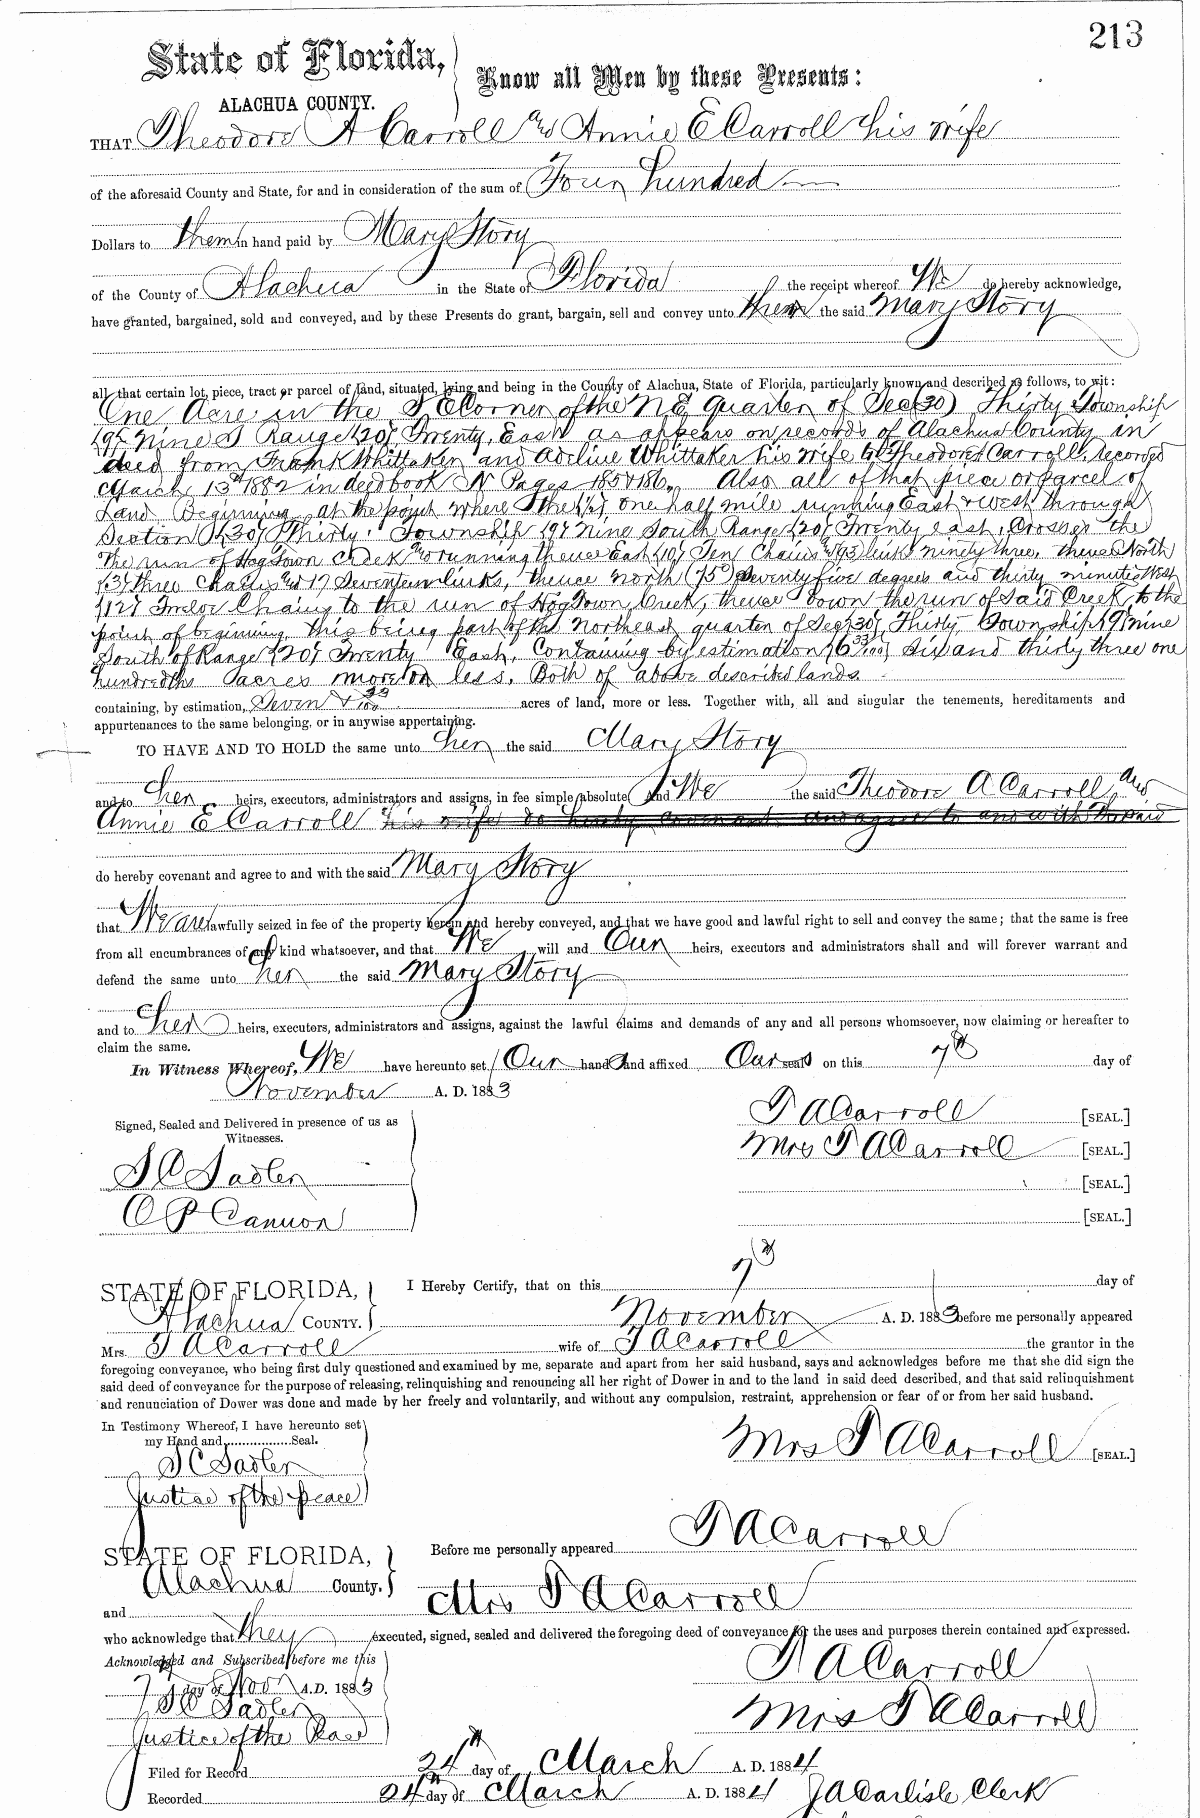 213
State of Florida,
Know all Men by these Presents:
ALACHUA COUNTY.
THAT Theodore A Carroll and Annie E Carroll his wife
of the aforesaid County and State, for and in consideration of the sum of Four hundred
Dollars to them in hand paid by Mary Story
of the County of Alachua in the State of Florida the receipt whereof We do hereby acknowledge,
have granted, bargained, sold and conveyed, and by these Presents do grant, bargain, sell and convey unto the said Mary Story
all that certain lot, piece, tract or parcel of land, situated, lying and being in the County of Alachua, State of Florida, particularly known and described as follows, to wit:
One Acre in the S E Corner of the N E quarter of Sec (30) Thirty Township
(9) Nine S Range (20) Twenty, East as appears on records of Alachua County in
deed from Frank Whittaker and Adeline Whittaker his wife to Theodore Carroll. Recorded
March 13th 1882 in deed book N Pages 185 & 186. Also all of that piece or parcel of
Land Beginning at the point where the (½) one half mile running East & west through
Section (30) Thirty. Township (9) Nine South Range (20) Twenty east, Crosses the
The run of Hog Town Creek and running thence East (10) Ten Chains and (93) links ninety three, thence North
(3) three Chains and 17 Seventeen links, thence north (75°) Seventy five degrees and thirty minutes West
(12) Twelve Chains to the run of Hog Town Creek, thence down the run of said Creek to the
point of beginning. this being part of the Northeast quarter of Sec (30) Thirty, Township (9) nine
South of Range (20) Twenty East, Containing by estimation (6 33/100) Six and thirty three one
hundredths acres more or less. Both of above described lands
containing, by estimation, Seven & 33/100 acres of land, more or less. Together with, all and singular the tenements, hereditaments and
appurtenances to the same belonging, or in anywise appertaining.
TO HAVE AND TO HOLD the same unto her the said Mary Story
and to her heirs, executors, administrators and assigns, in fee simple absolute And We the said Theodore A Carroll and
Annie E Carroll his wife do hereby covenant and agree to and with the said
do hereby covenant and agree to and with the said Mary Story
that We are lawfully seized in fee of the property herein and hereby conveyed, and that we have good and lawful right to sell and convey the same; that the same is free
from all encumbrances of any kind whatsoever, and that We will and Our heirs, executors and administrators shall and will forever warrant and
defend the same unto her the said Mary Story
and to her heirs, executors, administrators and assigns, against the lawful claims and demands of any and all persons whomsoever, now claiming or hereafter to
claim the same.
In Witness Whereof, We have hereunto set Our hands and affixed Our seals on this 7th day of
November A. D. 1883
Signed, Sealed and Delivered in presence of us as
Witnesses.
T A Carroll [SEAL.]
Mrs T A Carroll [SEAL.]
S C Sadler
[SEAL.]
O P Cannon
[SEAL.]
STATE OF FLORIDA,
I Hereby Certify, that on this 7th day of
Alachua COUNTY.
November A. D. 1883 before me personally appeared
Mrs. T A Carroll wife of T A Carroll the grantor in the
foregoing conveyance, who being first duly questioned and examined by me, separate and apart from her said husband, says and acknowledges before me that she did sign the
said deed of conveyance for the purpose of releasing, relinquishing and renouncing all her right of Dower in and to the land in said deed described, and that said relinquishment
and renunciation of Dower was done and made by her freely and voluntarily, and without any compulsion, restraint, apprehension or fear of or from her said husband.
In Testimony Whereof, I have hereunto set
my Hand and Seal.
Mrs T A Carroll [SEAL.]
S C Sadler
Justice of the peace
STATE OF FLORIDA,
Before me personally appeared T A Carroll
Alachua County.
and Mrs T A Carroll
who acknowledge that they executed, signed, sealed and delivered the foregoing deed of conveyance for the uses and purposes therein contained and expressed.
Acknowledged and Subscribed before me this
7th day of Nov A.D. 1883
T A Carroll
S C Sadler
Mrs T A Carroll
Justice of the Peace
Filed for Record 24th day of March A. D. 1884
Recorded 24th day of March A. D. 1884 J A Carlisle Clerk